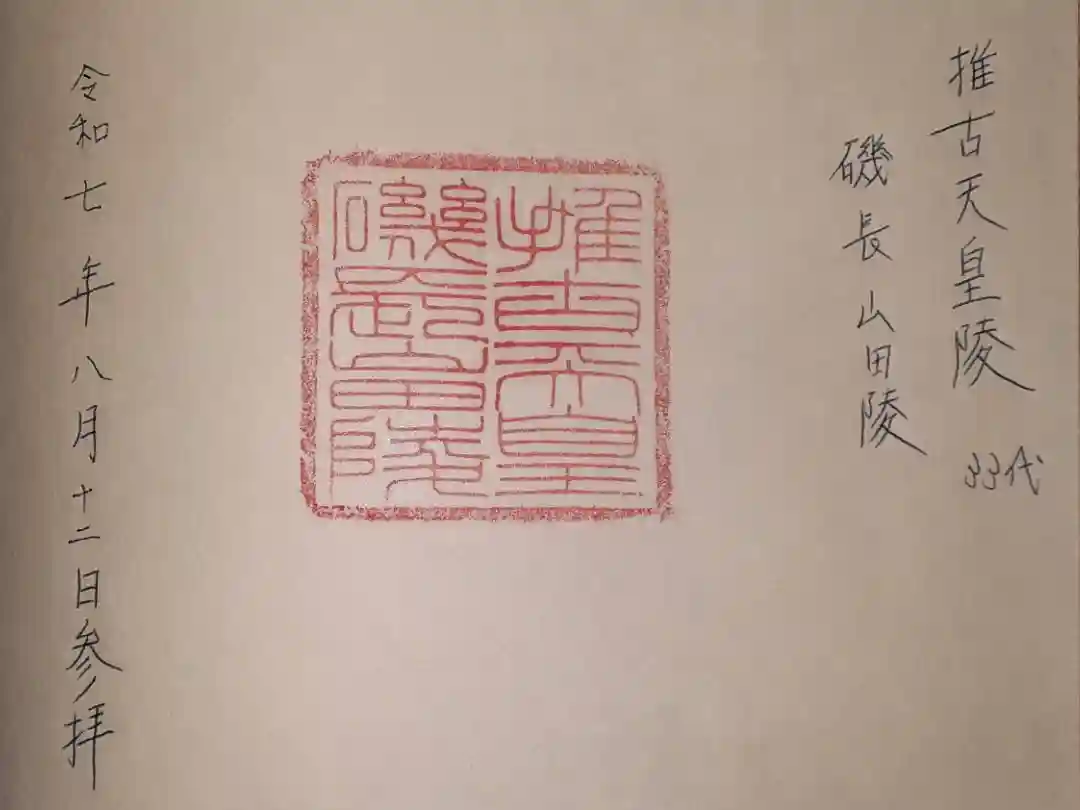 推古天皇陵 33代
磯長山田陵
推古天皇
磯長山田陵
令和七年八月十二日参拝